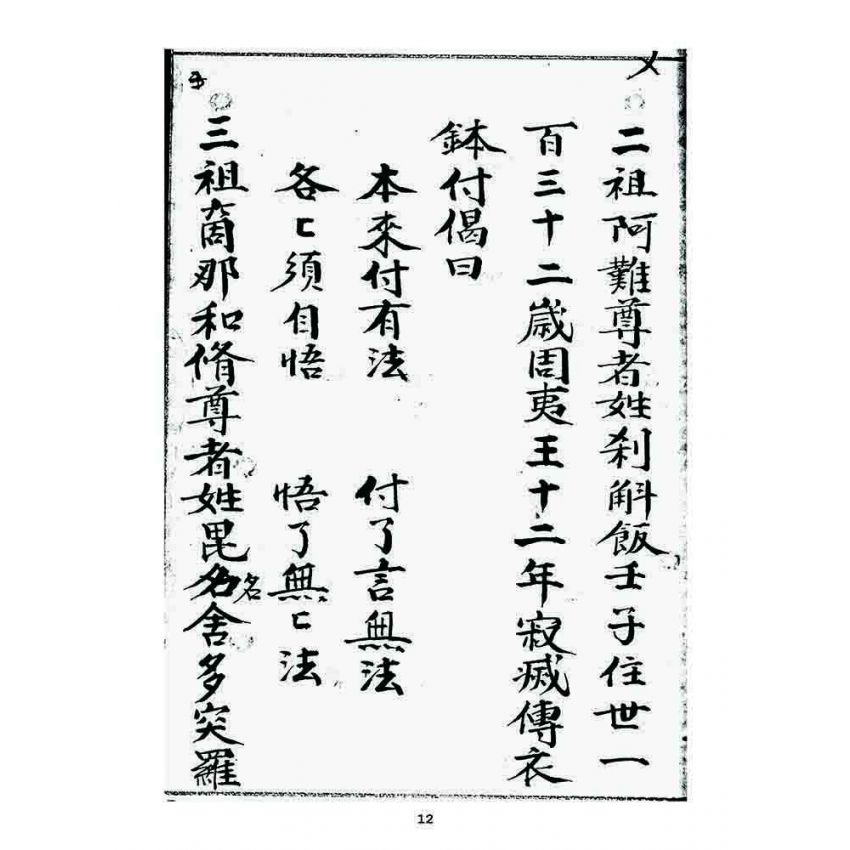 二祖阿難尊者姓刹斛飯壬子住世一
百三十二歲周夷王十二年寂滅傳衣
鉢付偈曰
本來付有法 付了言無法
各〻須自悟 悟了無〻法
三祖商那和脩尊者姓毘名舍多突羅
名
12